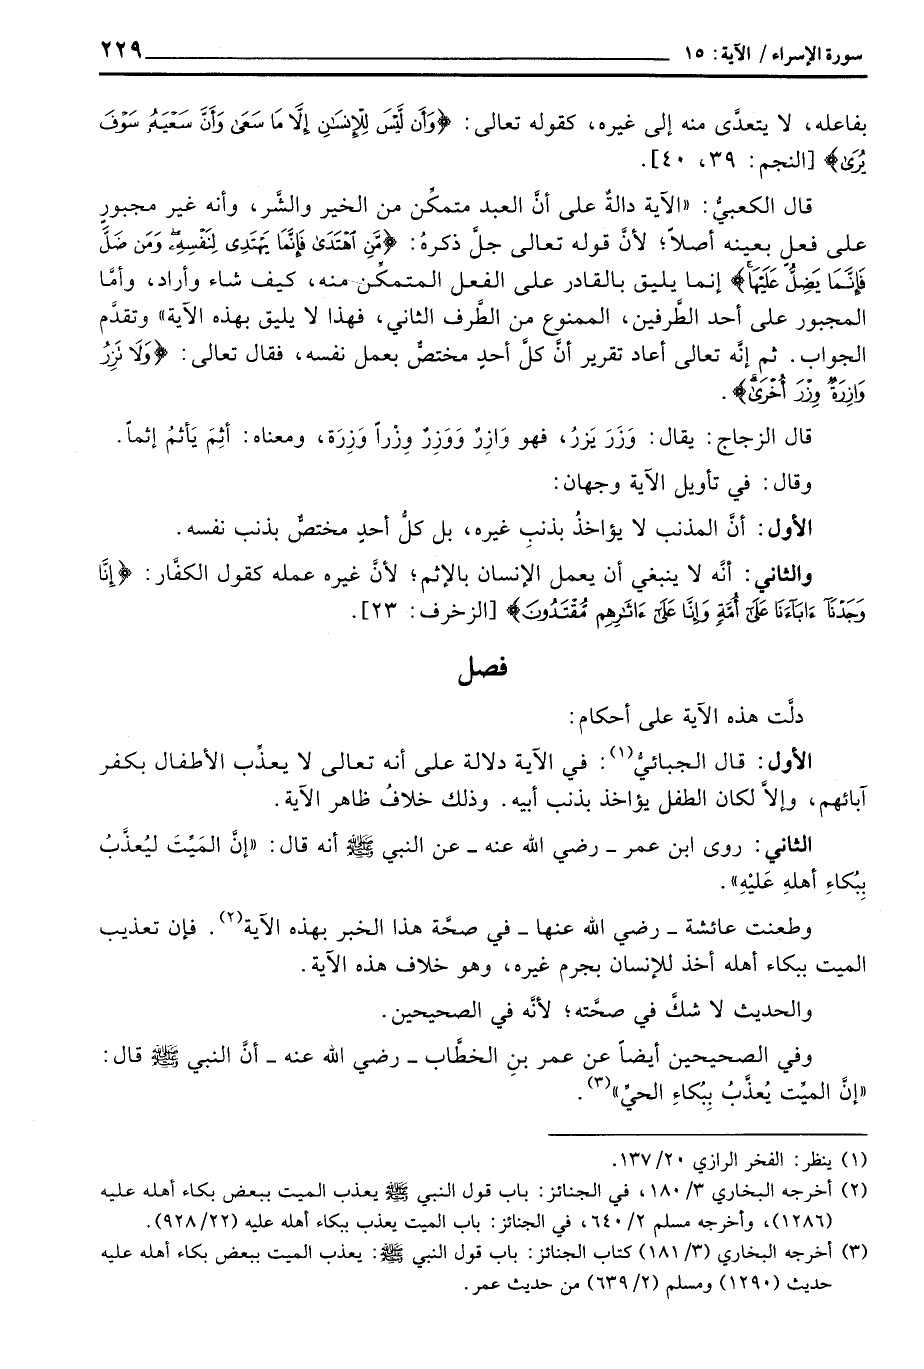 سورة الإسراء / الآية: ١٥ ٢٢٩
بفاعله، لا يتعدَّى منه إلى غيره، كقوله تعالى: ﴿وَأَن لَّيْسَ لِلْإِنسَٰنِ إِلَّا مَا سَعَىٰ وَأَنَّ سَعْيَهُۥ سَوْفَ
يُرَىٰ﴾ [النجم: ٣٩، ٤٠].
قال الكعبيُّ: «الآية دالةٌ على أنَّ العبد متمكِّن من الخير والشَّر، وأنه غير مجبورٍ
على فعلٍ بعينه أصلاً؛ لأنَّ قوله تعالى جلَّ ذكرهُ: ﴿مَّنِ ٱهْتَدَىٰ فَإِنَّمَا يَهْتَدِى لِنَفْسِهِۦۖ وَمَن ضَلَّ
فَإِنَّمَا يَضِلُّ عَلَيْهَاۚ﴾ إنما يليق بالقادر على الفعل المتمكِّن منه، كيف شاء وأراد، وأمَّا
المجبور على أحد الطَّرفين، الممنوع من الطَّرف الثاني، فهذا لا يليق بهذه الآية» وتقدَّم
الجواب. ثم إنَّه تعالى أعاد تقرير أنَّ كلَّ أحدٍ مختصٌّ بعمل نفسه، فقال تعالى: ﴿وَلَا نَزِرُ
وَازِرَةٌ وِزْرَ أُخْرَىٰۗ﴾.
قال الزجاج: يقال: وَزَرَ يَزرُ، فهو وَازِرٌ وَوَزِرٌ وِزْراً وَزِرَة، ومعناه: أثِمَ يَأثمُ إثماً.
وقال: في تأويل الآية وجهان:
الأول: أنَّ المذنب لا يؤاخذُ بذنبِ غيره، بل كلُّ أحدٍ مختصٌّ بذنب نفسه.
والثاني: أنَّه لا ينبغي أن يعمل الإنسان بالإثم؛ لأنَّ غيره عمله كقول الكفَّار: ﴿إِنَّا
وَجَدْنَآ ءَابَآءَنَا عَلَىٰٓ أُمَّةٍ وَإِنَّا عَلَىٰٓ ءَاثَٰرِهِم مُّقْتَدُونَ﴾ [الزخرف: ٢٣].
فصل
دلَّت هذه الآية على أحكام:
الأول: قال الجبائيُّ(١): في الآية دلالة على أنه تعالى لا يعذِّب الأطفال بكفر
آبائهم، وإلاَّ لكان الطفل يؤاخذ بذنب أبيه. وذلك خلافُ ظاهر الآية.
الثاني: روى ابن عمر ـ رضي الله عنه ـ عن النبي ﷺ أنه قال: «إنَّ المَيِّتَ ليُعذَّبُ
بِبُكاءِ أهلهِ عَليْهِ».
وطعنت عائشة ـ رضي الله عنها ـ في صحَّة هذا الخبر بهذه الآية(٢). فإن تعذيب
الميت ببكاء أهله أخذ للإنسان بجرم غيره، وهو خلاف هذه الآية.
والحديث لا شكَّ في صحَّته؛ لأنَّه في الصحيحين.
وفي الصحيحين أيضاً عن عمر بنِ الخطَّاب ـ رضي الله عنه ـ أنَّ النبي ﷺ قال:
«إنَّ الميِّت يُعذَّبُ بِبُكاءِ الحيِّ»(٣).
(١) ينظر: الفخر الرازي ٢٠/ ١٣٧.
(٢) أخرجه البخاري ٣/ ١٨٠، في الجنائز: باب قول النبي ﷺ يعذب الميت ببعض بكاء أهله عليه
(١٢٨٦)، وأخرجه مسلم ٢/ ٦٤٠، في الجنائز: باب الميت يعذب ببكاء أهله عليه (٢٢/ ٩٢٨).
(٣) أخرجه البخاري (٣/ ١٨١) كتاب الجنائز: باب قول النبي ﷺ: يعذب الميت ببعض بكاء أهله عليه
حديث (١٢٩٠) ومسلم (٢/ ٦٣٩) من حديث عمر.